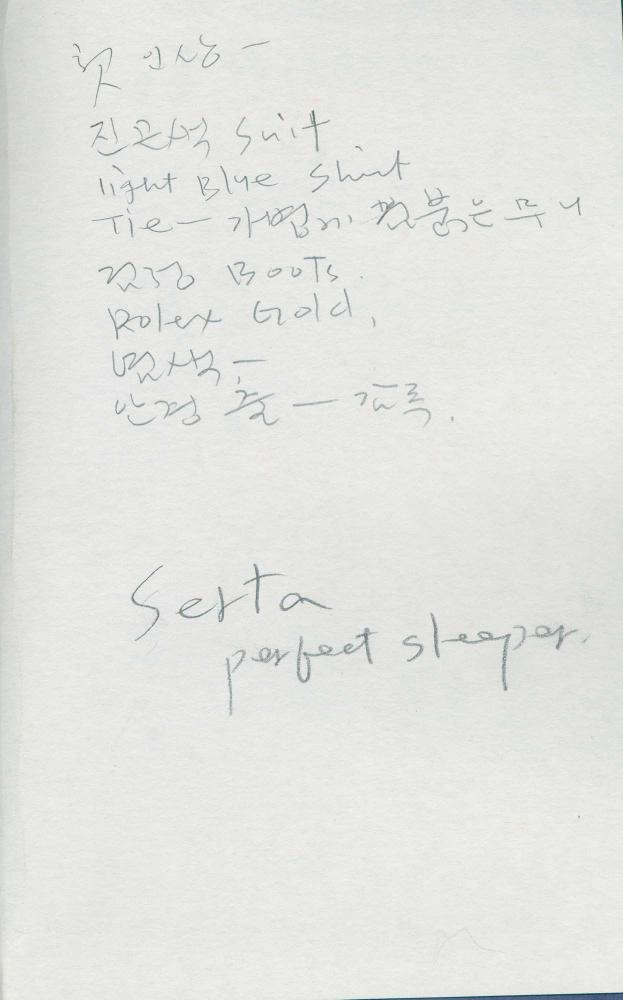 첫 인상 –
진곤색 Suit
light Blue Shirt
Tie – 가볍게 붉은 무늬
검정 Boots.
Rolex Gold,
명석 –
안경 줄 – 초록.
Serta
perfect sleeper.